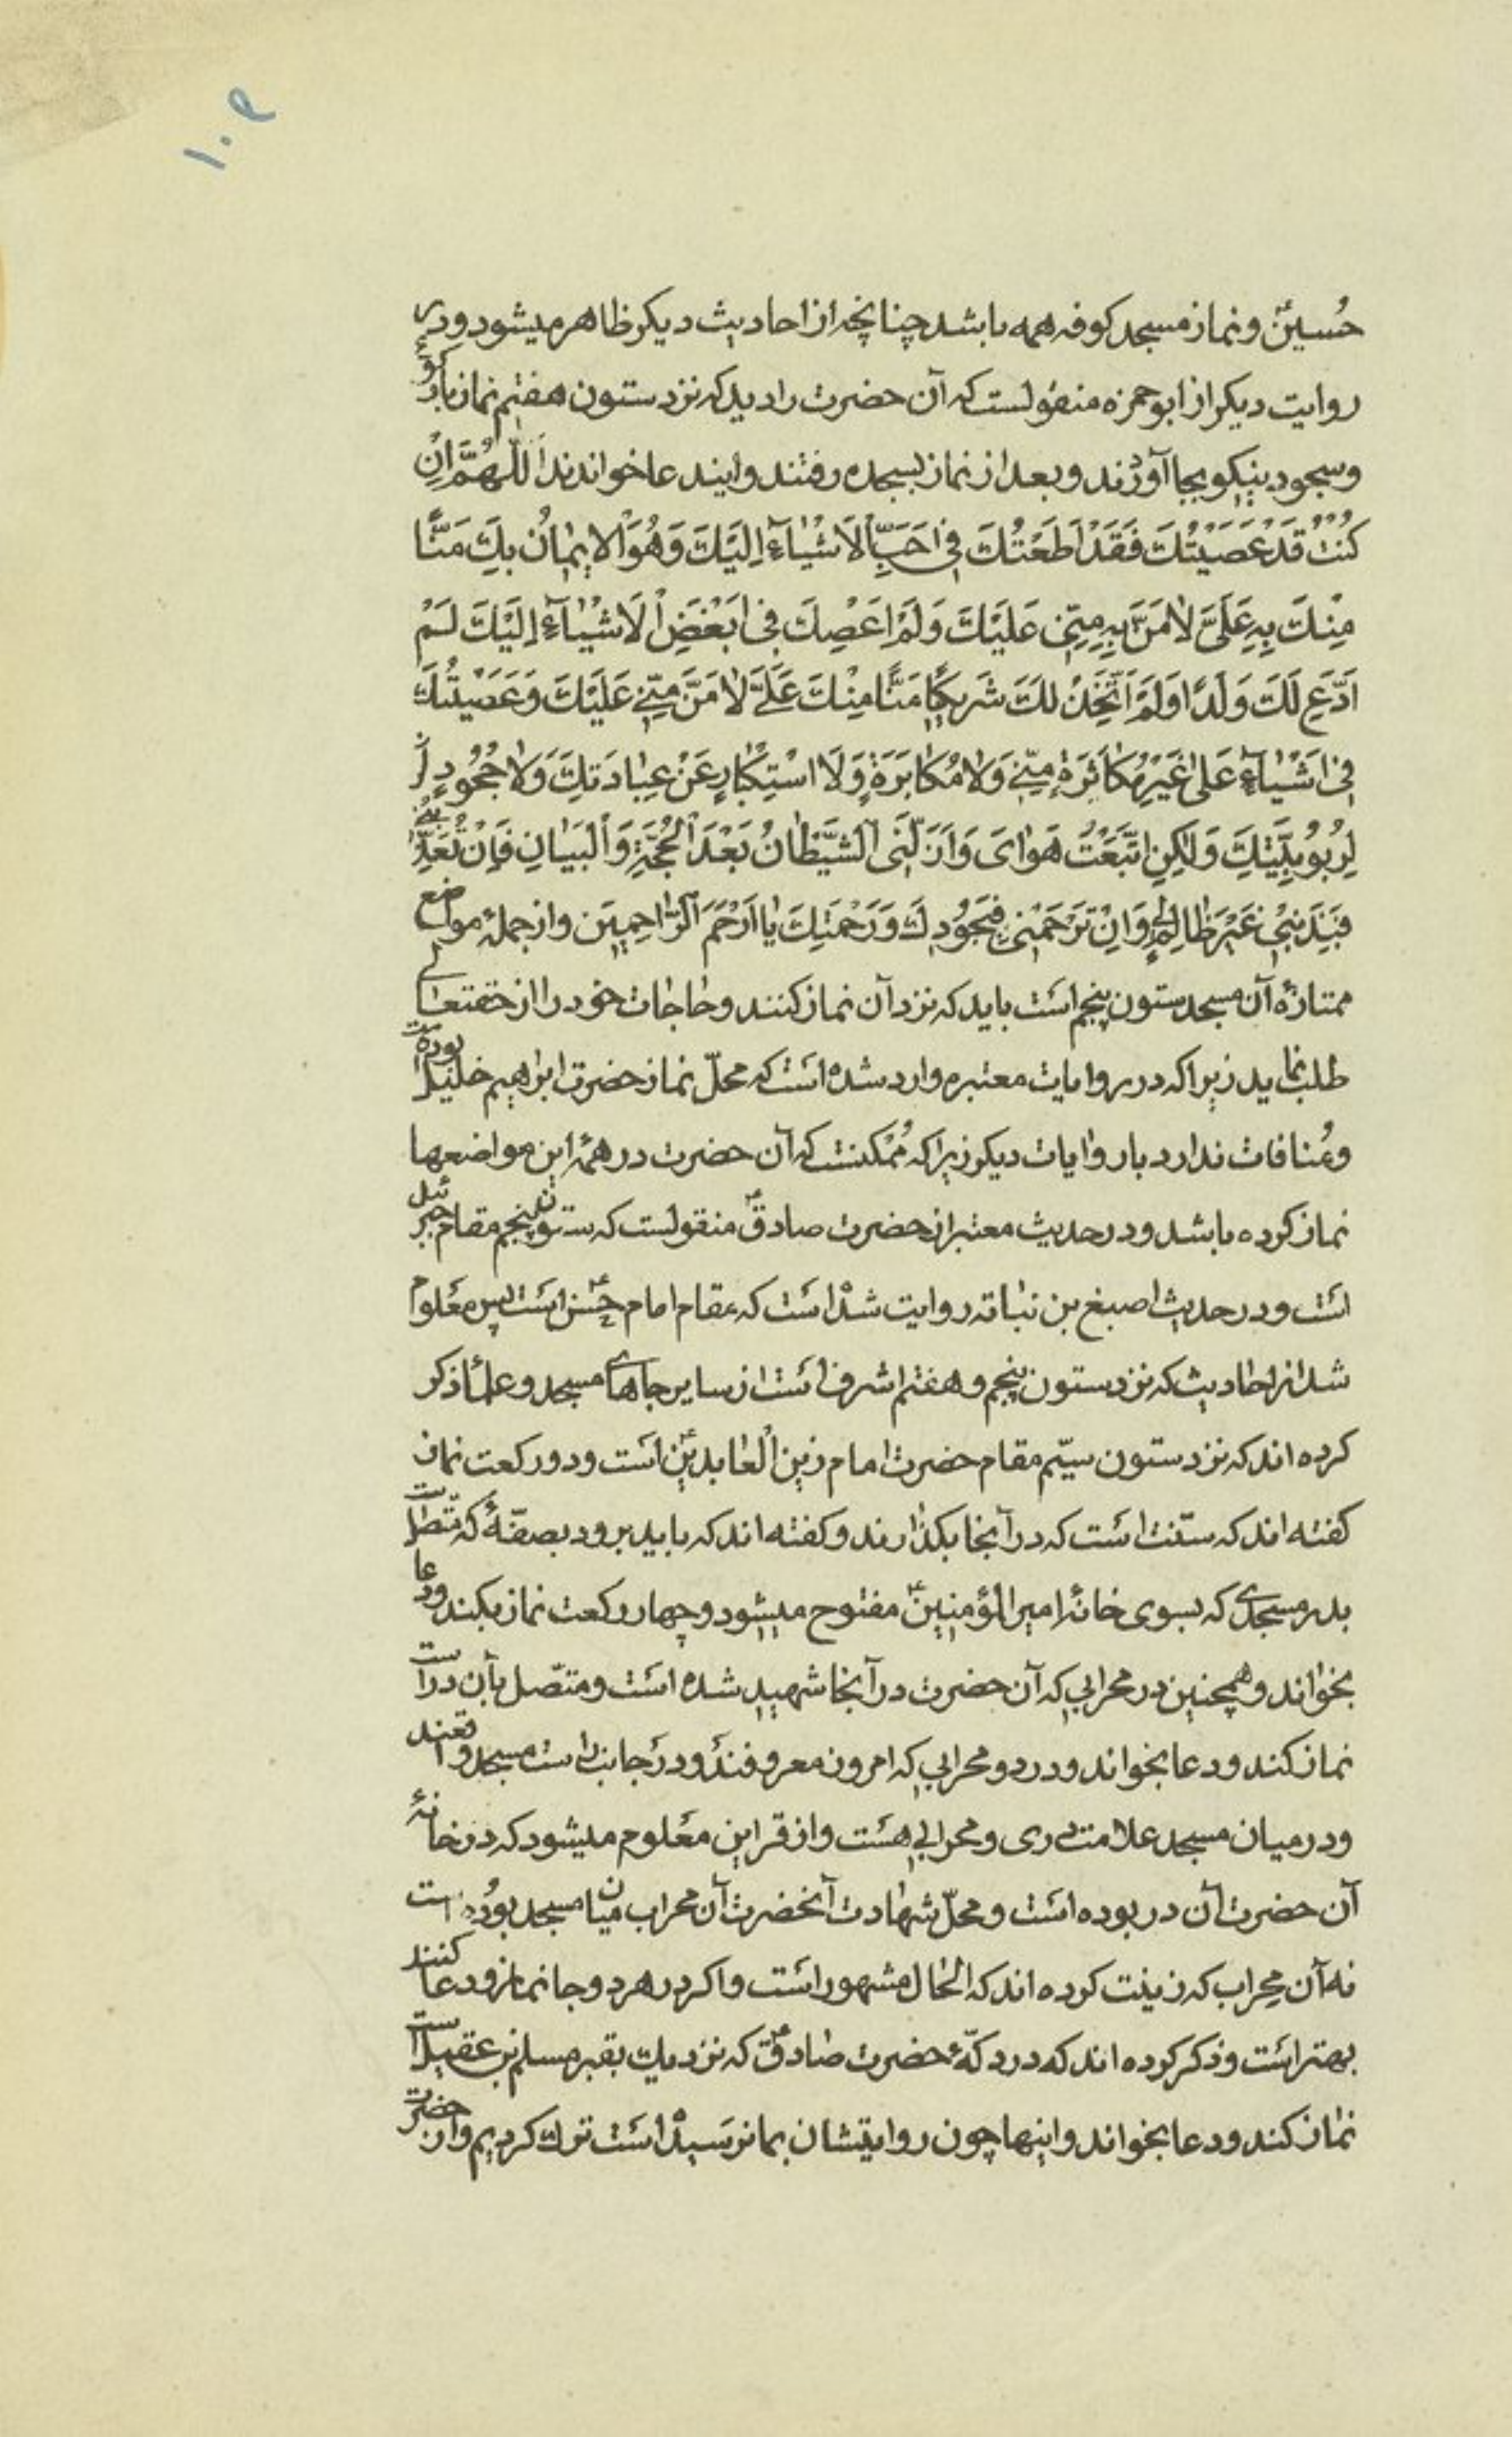 ۱۰۲
حُسینؑ و نماز مسجد کوفه همه باشد چنانچه از احادیث دیکر ظاهر میشود و در
روایت دیکر از ابوحمزه منقولست که آن حضرت را دید که نزد ستون هفتم نماز با رکوع
و سجود نیکو بجا آوردند و بعد از نماز بسجده رفتند و ایندعا خواندند اَللّٰهُمَّ اِنْ
کُنْتُ قَدْ عَصَیْتُکَ فَقَدْ اَطَعْتُکَ فی اَحَبِّ الْاَشْیٰآءِ اِلَیْکَ وَهُوَ الْایٖمٰانُ بِکَ مَنًّا
مِنْکَ بِهِ عَلَیَّ لٰا مَنَّ بِهِ مِنّیٖ عَلَیْکَ وَلَمْ اَعْصِکَ فیٖ اَبْغَضِ الْاَشْیٰآءِ اِلَیْکَ لَمْ
اَدَّعِ لَکَ وَلَدًا وَلَمْ اَتَّخِذْ لَکَ شَریٖکًا مَنًّا مِنْکَ عَلَیَّ لٰا مَنَّ مِنّیٖ عَلَیْکَ وَعَصَیْتُکَ
فیٖ اَشْیٰآءِ عَلیٰ غَیْرِ مُکٰاثَرَةٍ مِنّیٖ وَلٰا مُکٰابَرَةٍ وَلَا اسْتِکْبٰارٍ عَنْ عِبٰادَتِکَ وَلٰا جُحُودٍ
لِرُبُوبِیَّتِکَ وَلٰکِنِ اتَّبَعْتُ هَوٰایَ وَاَزَلَّنیَ الشَّیْطٰانُ بَعْدَ الْحُجَّةِ وَالْبَیٰانِ فَاِنْ تُعَذِّبْنیٖ
فَبِذَنْبیٖ غَیْرَ ظٰالِمٍ لیٖ وَاِنْ تَرْحَمْنیٖ فَبِجُودِکَ وَرَحْمَتِکَ یٰا اَرْحَمَ الرّٰاحِمیٖنَ و از جملهٔ مواضع
ممتازهٔ آن مسجد ستون پنجم است باید که نزد آن نماز کنند و حاجات خود را از حقتعالی
طلب نماید زیرا که در روایات معتبره وارد شده است که محلّ نماز حضرت ابراهیم خلیل بوده است
و مُنافات ندارد با روایات دیکر زیرا که مُمْکنست که آن حضرت در همهٔ این مواضعها
نماز کرده باشد و در حدیث معتبر از حضرت صادقؑ منقولست که ستون پنجم مقام جبرئیل
است و در حدیث اصبغ بن نباته روایت شده است که مقام امام حسنؑ است پس معلوم
شد از احادیث که نزد ستون پنجم و هفتم اشرف است از سایر جاهای مسجد و علما ذکر
کرده اند که نزد ستون سیّم مقام حضرت امام زین العابدینؑ است و دو رکعت نماز
کفته اند که سنّت است که در آنجا بکذارند و کفته اند که باید برود بصفّهٔ که متّصل است
بدر مسجدی که بسوی خانهٔ امیرالمؤمنینؑ مفتوح میشود و چهار رکعت نماز بکند و دعا
بخواند و همچنین در محرابی که آن حضرت در آنجا شهید شده است و متّصل بآن در است
نماز کند و دعا بخواند و در دو محرابی که امروز معروفند و در جانب راست مسجد واقعند
و در میان مسجد علامت دری و محرابی هست و از قراین معلوم میشود که در خانهٔ
آن حضرت آن در بوده است و محلّ شهادت آنحضرت آن محراب میان مسجد بوده است
نه آن محراب که زینت کرده اند که الحال مشهور است و اکر در هر دو جا نماز و دعا کنند
بهتر است و ذکر کرده اند که در دکّهٔ حضرت صادقؑ که نزدیک بقبر مسلم بن عقیل است
نماز کند و دعا بخواند و اینها چون روایتشان بما نرسیده است ترک کردیم و از حضرت